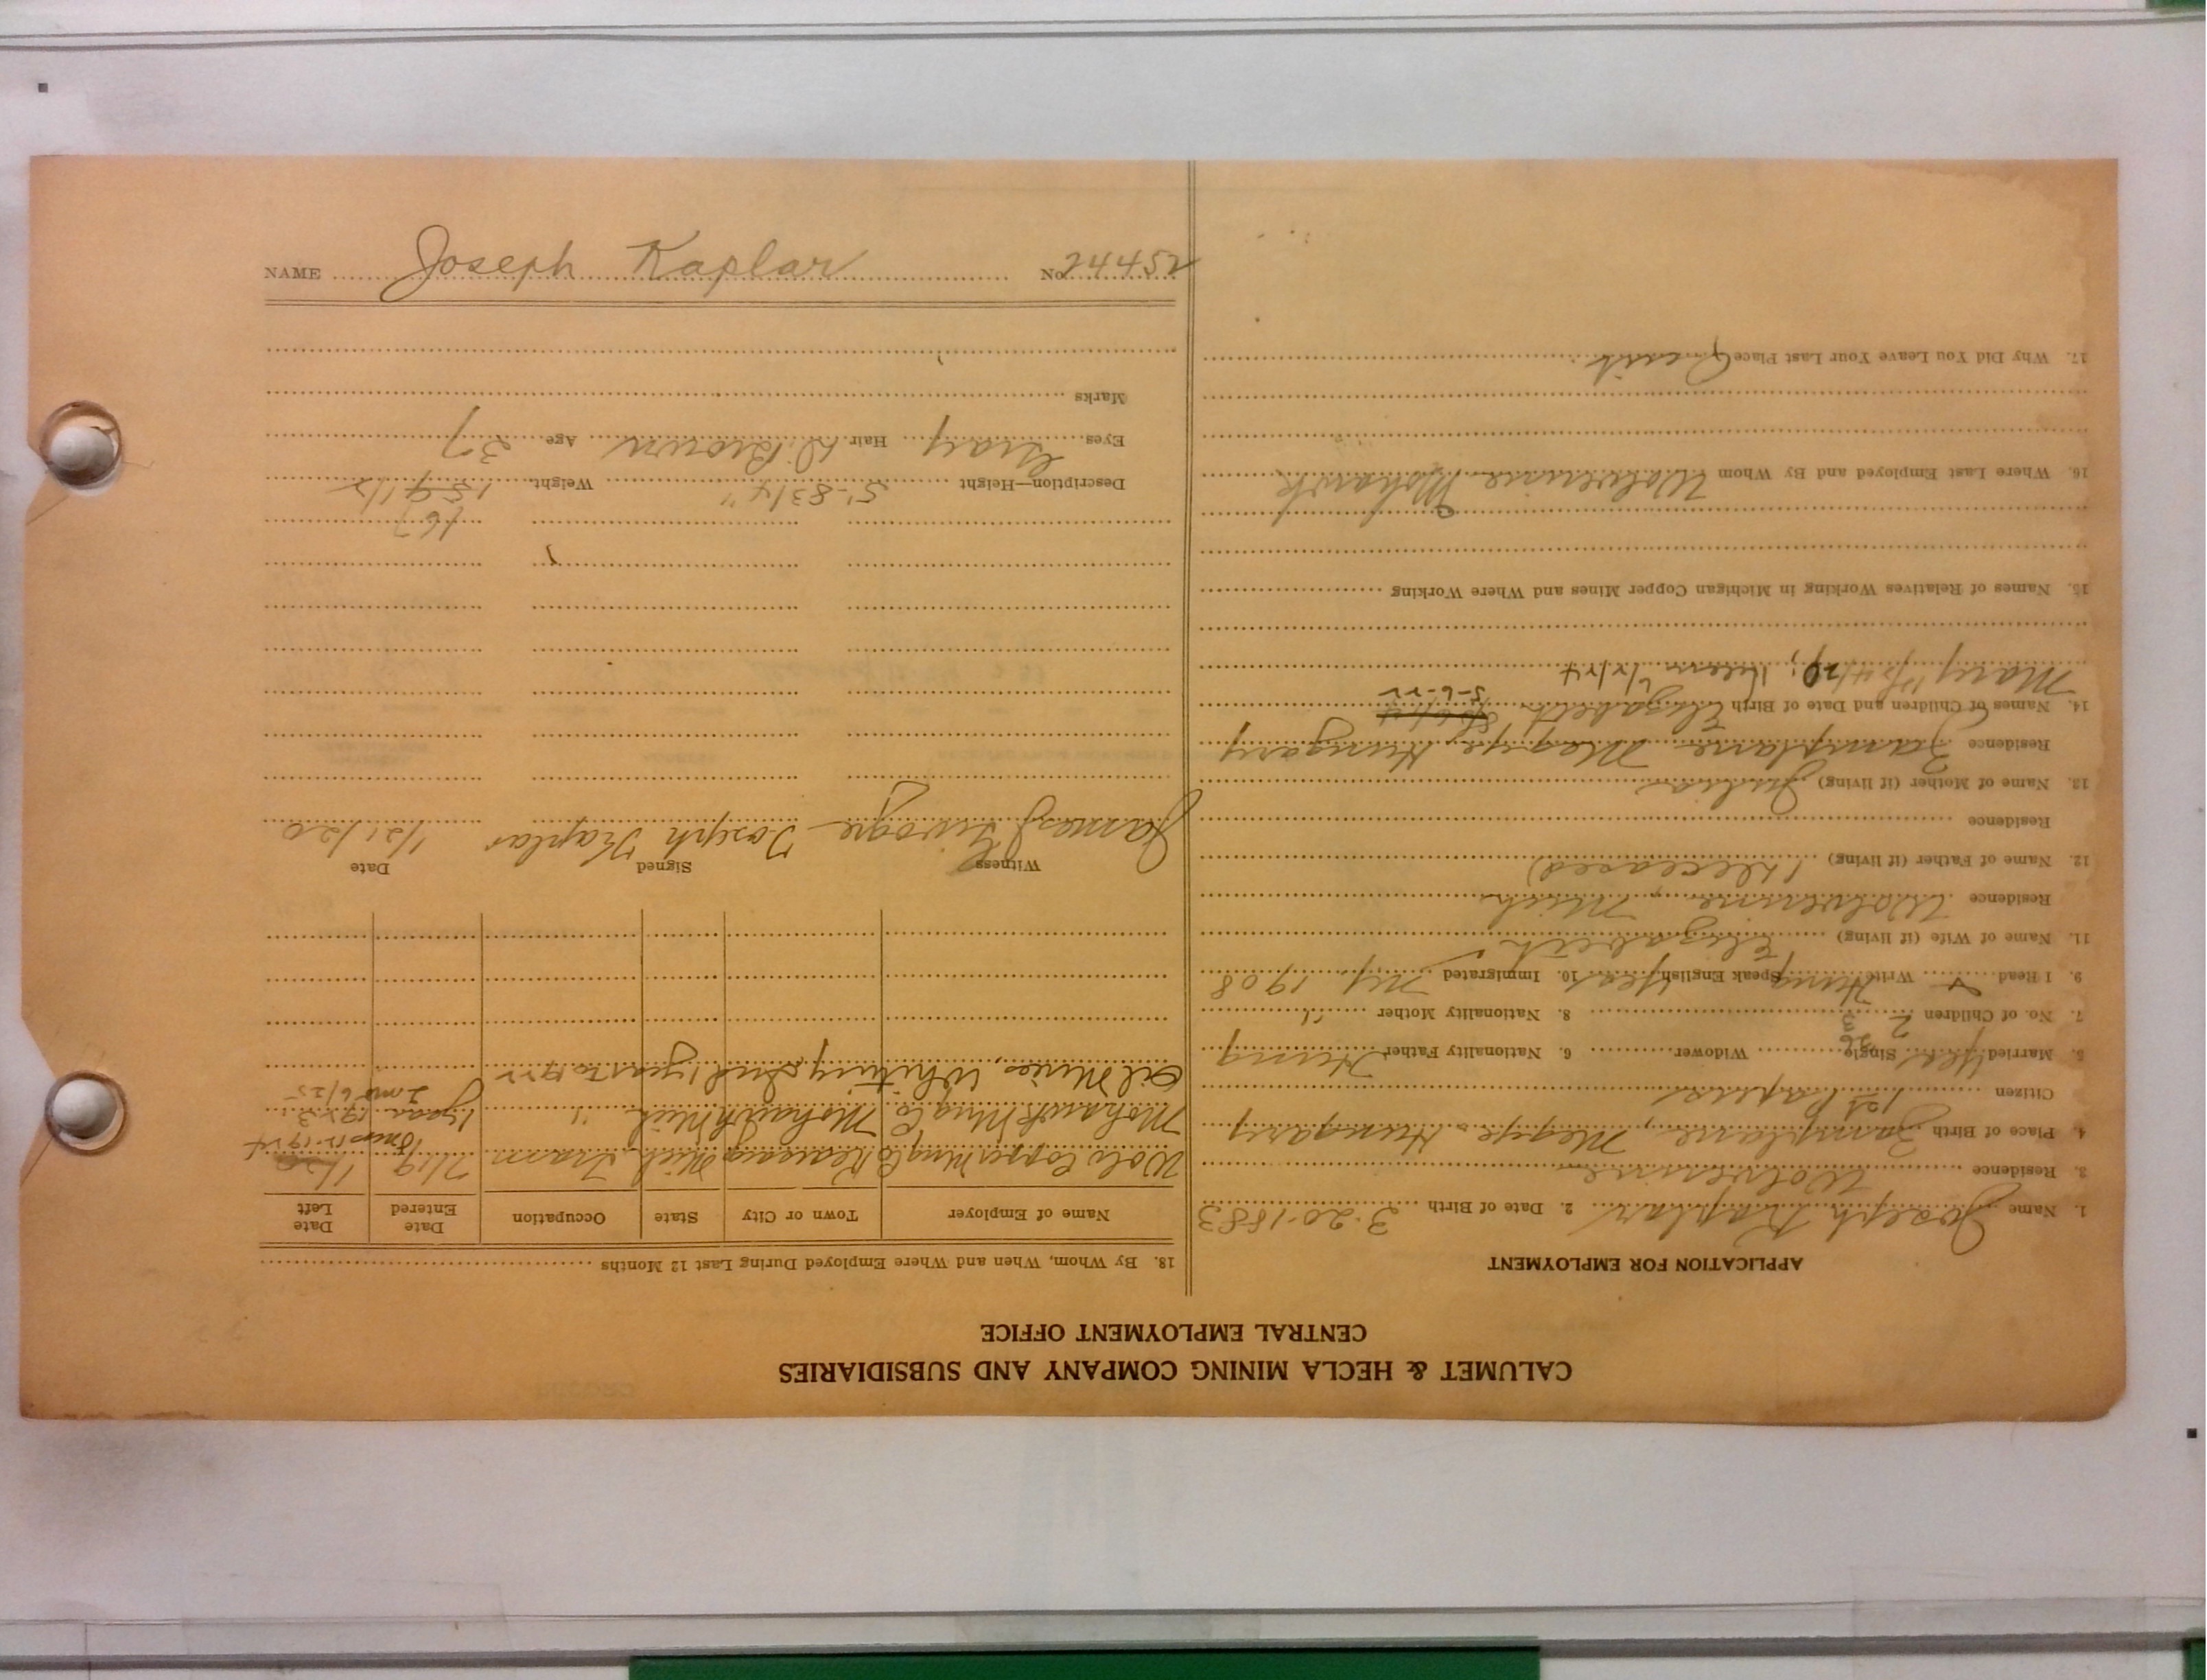 CALUMET & HECLA MINING COMPANY AND SUBSIDIARIES
CENTRAL EMPLOYMENT OFFICE
APPLICATION FOR EMPLOYMENT
1. Name Joseph Kaplar 2. Date of Birth 3-20-1883
3. Residence Wolverine
4. Place of Birth Zamplane, Megye, Hungary
Citizen 1st Papers
5. Married Yes Single 36 Widower 6. Nationality Father Hung
7. No. of Children 2 3 8. Nationality Mother "
9. I Read & Write Hung Speak English Yes 10. Immigrated NY 1908
11. Name of Wife (if living) Elizabeth
Residence Wolverine, Mich
12. Name of Father (if living) (deceased)
Residence
13. Name of Mother (if living) Julia
Residence Zamplane Megye, Hungary
14. Names of Children and Date of Birth Elizabeth 5-6-22
Mary Helen 6/2/24
15. Names of Relatives Working in Michigan Copper Mines and Where Working
16. Where Last Employed and By Whom Wolverine Mohawk
17. Why Did You Leave Your Last Place Quit
18. By Whom, When and Where Employed During Last 12 Months
Name of Employer Town or City State Occupation Date Entered Date Left
Wolv Copper Mng Co Kearsarge Mich Tram 7/19 1/20
Mohawk Mng Co Mohawk Mich " 1 year 1923
2 mo 6/25
Oil Whiting Ind 1 year to 1922
Witness Signed Date
James Joseph Kaplar 1/21/20
167
Description—Height 5'-8 3/4" Weight 159 1/2
Eyes Gray Hair D. Brown Age 37
Marks
NAME Joseph Kaplar No. 24452